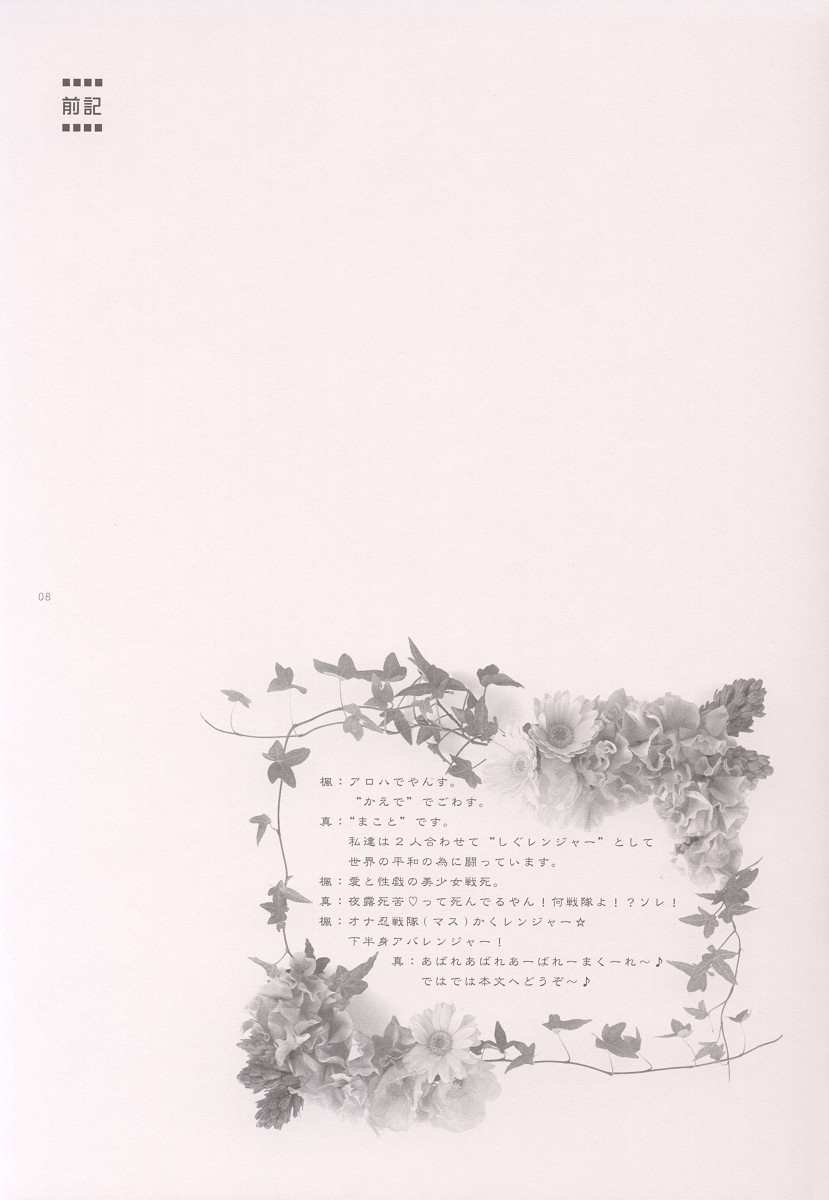 前記
08
楓：アロハでやんす。
“かえで”でごわす。
真：“まこと”です。
私達は２人合わせて“しぐレンジャー”として
世界の平和の為に闘っています。
楓：愛と性戯の美少女戦死。
真：夜露死苦♡って死んでるやん！何戦隊よ！？ソレ！
楓：オナ忍戦隊(マス)かくレンジャー☆
下半身アバレンジャー！
真：あばれあばれあーばれーまくーれ～♪
ではでは本文へどうぞ～♪